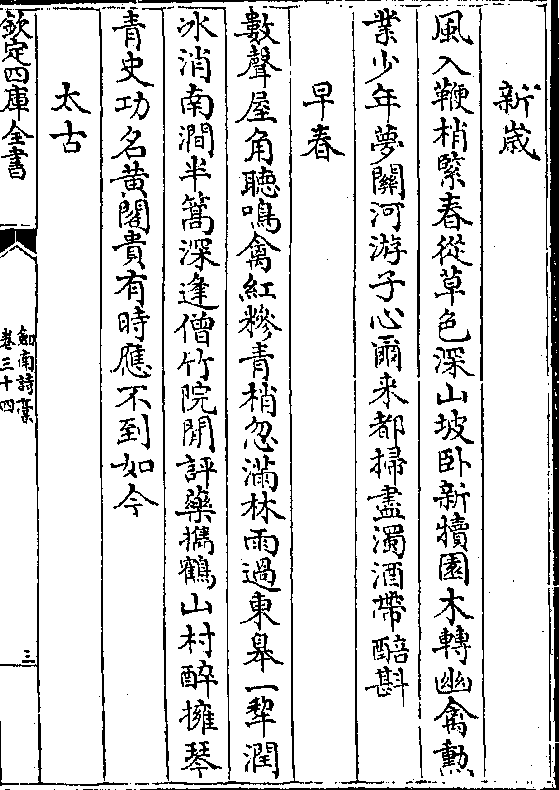 新歳
風入鞭梢緊春從草色深山坡卧新犢園木轉幽禽勲
業少年夢關河游子心爾来都掃盡濁酒帶醅斟
早春
數聲屋角聽鳴禽紅糝青梢忽滿林雨過東臯一犂潤
冰消南澗半篙深逢僧竹院閒評藥擕鶴山村醉擁琴
青史功名黄閣貴有時應不到如今
太古
欽定四庫全書
劒南詩藁
卷三十四
三